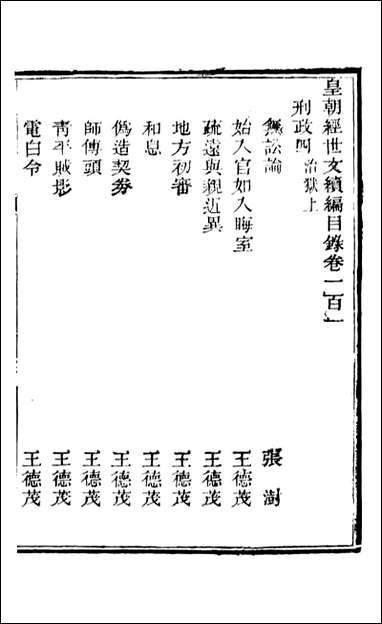 皇朝經世文續編目錄卷一百一
刑政四 治獄上
無訟論 張澍
始入官如入晦室 王德茂
疏遠與親近異 王德茂
地方初審 王德茂
和息 王德茂
偽造契券 王德茂
師傳頭 王德茂
青平賊影 王德茂
電白令 王德茂